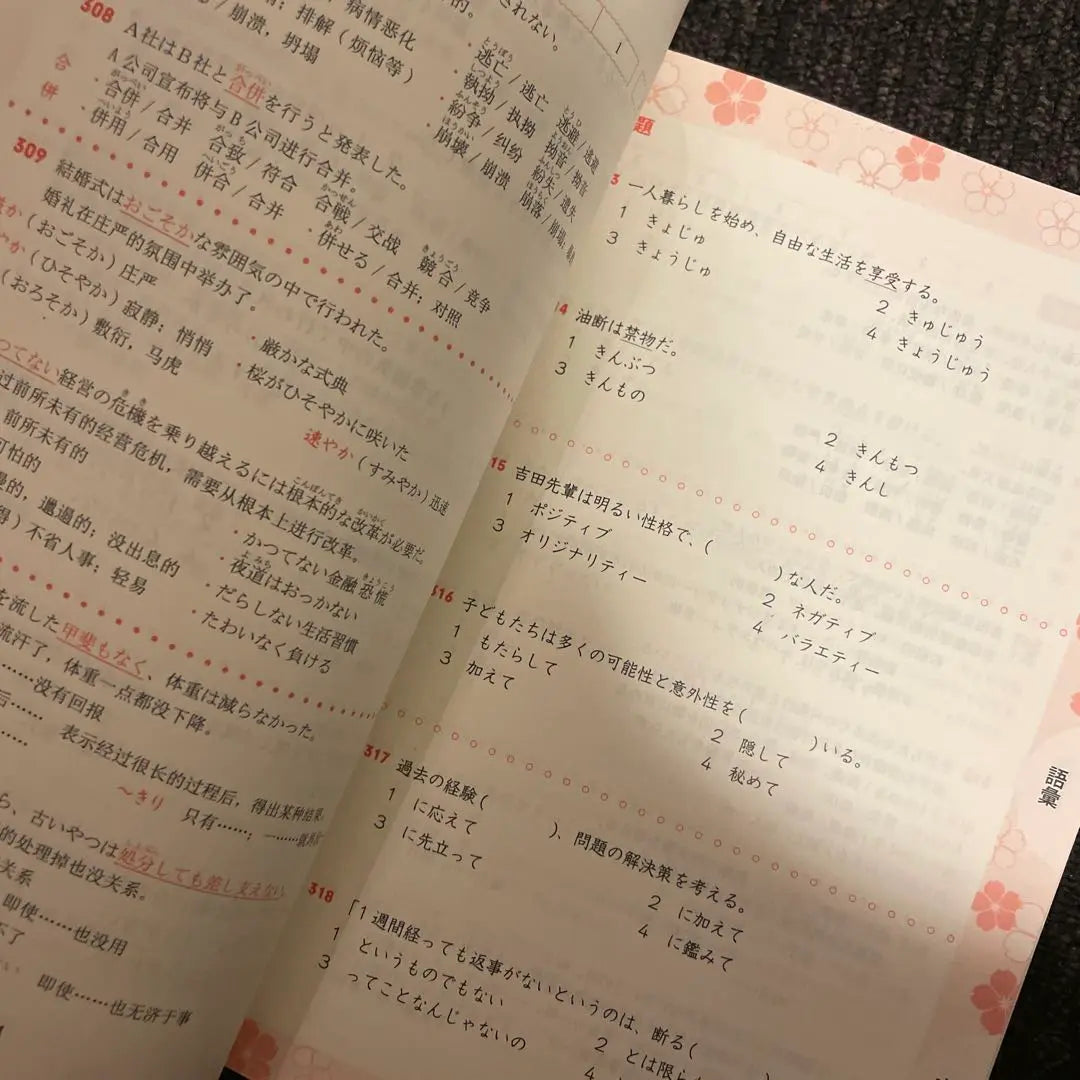 されない。
病情恶化
排解（烦恼等）
崩溃，坍塌
とうぼう
・逃亡 / 逃亡
とうひ
逃避 / 逃避
しつよう
・執拗 / 执拗
ようおん
拗音 / 拗音
ふんそう
・紛争 / 纠纷
ふんしつ
紛失 / 遗失
ほうかい
・崩壊 / 崩溃
ほうらく
崩落 / 崩塌；
308
合併
A社はB社と合併を行うと発表した。
がっぺい
A公司宣布将与B公司进行合并。
がっぺい
合併 / 合并
がっち
合致 / 符合
かっせん
合戦 / 交战
きょうごう
競合 / 竞争
へいよう
併用 / 合用
へいごう
併合 / 合并
あわ
併せる / 合并；对照
309
結婚式はおごそかな雰囲気の中で行われた。
婚礼在庄严的氛围中举办了。
か（おごそか）庄严
・厳かな式典
やか（ひそやか）寂静；悄悄
・桜がひそやかに咲いた
（おろそか）敷衍，马虎
速やか（すみやか）迅速
ってない経営の危機を乗り越えるには根本的な改革が必要だ。
きき
こんぽんてき
かいかく
前所未有的经营危机，需要从根本上进行改革。
前所未有的
・かつてない金融恐慌
きょうこう
可怕的
・夜道はおっかない
よみち
的，邋遢的；没出息的
・だらしない生活習慣
得）不省人事；轻易
・たわいなく負ける
を流した甲斐もなく、体重は減らなかった。
流汗了，体重一点都没下降。
……没有回报
后……
表示经过很长的过程后，得出某种结果。
～きり
只有……；一……就
ら、古いやつは処分しても差し支えない
しょぶん
的处理掉也没关系。
关系
即使……也没用
不了
即使……也无济于事
題
3 一人暮らしを始め、自由な生活を享受する。
1 きょじゅ
2 きゅじゅう
3 きょうじゅ
4 きょうじゅう
14 油断は禁物だ。
1 きんぶつ
2 きんもつ
3 きんもの
4 きんし
15 吉田先輩は明るい性格で、（ ）な人だ。
1 ポジティブ
2 ネガティブ
3 オリジナリティー
4 バラエティー
316 子どもたちは多くの可能性と意外性を（ ）いる。
1 もたらして
2 隠して
3 加えて
4 秘めて
317 過去の経験（ ）、問題の解決策を考える。
1 に応えて
2 に加えて
3 に先立って
4 に鑑みて
318 「1週間経っても返事がないというのは、断る（
1 というものでもない
2 とは限ら
3 ってことなんじゃないの
4
語彙